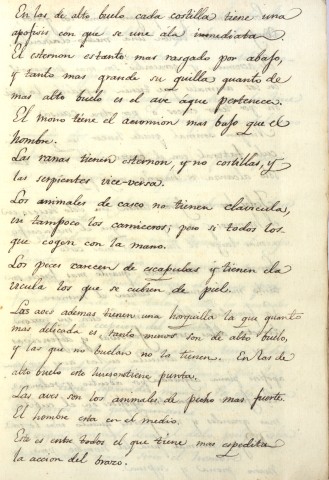 En las de alto buelo cada costilla tiene una
apofisis con que se une ala inmediata.
El esternon es tanto mas rasgado por abajo,
y tanto mas grande su quilla quanto de
mas alto buelo es el ave áque pertenece.
El mono tiene el acromion mas bajo que el
hombre.
Las ranas tienen esternon, y no costillas, y
las serpientes vice-versa.
Los animales de casco no tienen clavicula,
ni tampoco los carniceros; pero si todos los
que cogen con la mano.
Los peces carecen de escapulas y tienen cla
vicula los que se cubren de piel.
Las aves ademas tienen una horquilla la que quanto
mas delicada es tanto menos son de alto buelo,
y las que no buelan no la tienen. En las de
alto buelo este hueso tiene punta.
Las aves son los animales de pecho mas fuerte.
El hombre esta en el medio.
Este es entre todos el que tiene mas espedita
la accion del brazo.